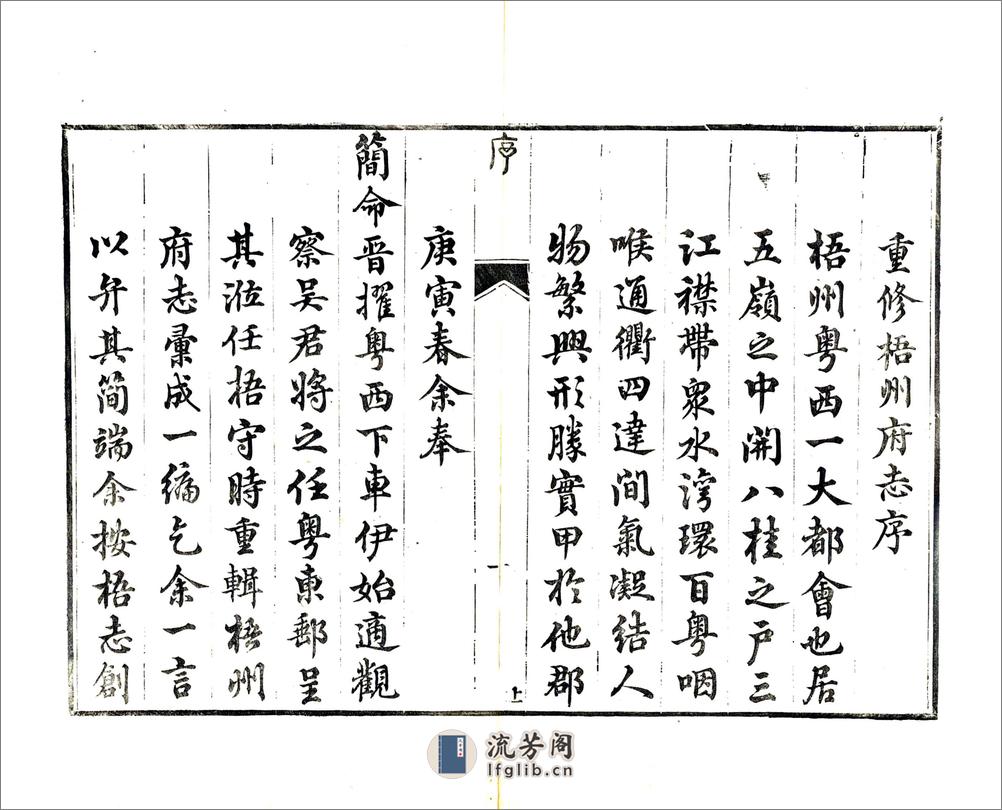 重修梧州府志序
梧州粤西一大都會也居
五嶺之中開八桂之戶三
江襟帶衆水灣環百粤咽
喉通衢四達間氣凝結人
物繁興形勝實甲於他郡
序
一
上
庚寅春余奉
簡命晋擢粤西下車伊始適觀
察吴君將之任粤東郵呈
其涖任梧守時重輯梧州
府志彙成一編乞余一言
以弁其简端余按梧志創
流芳阁
lfglib.cn